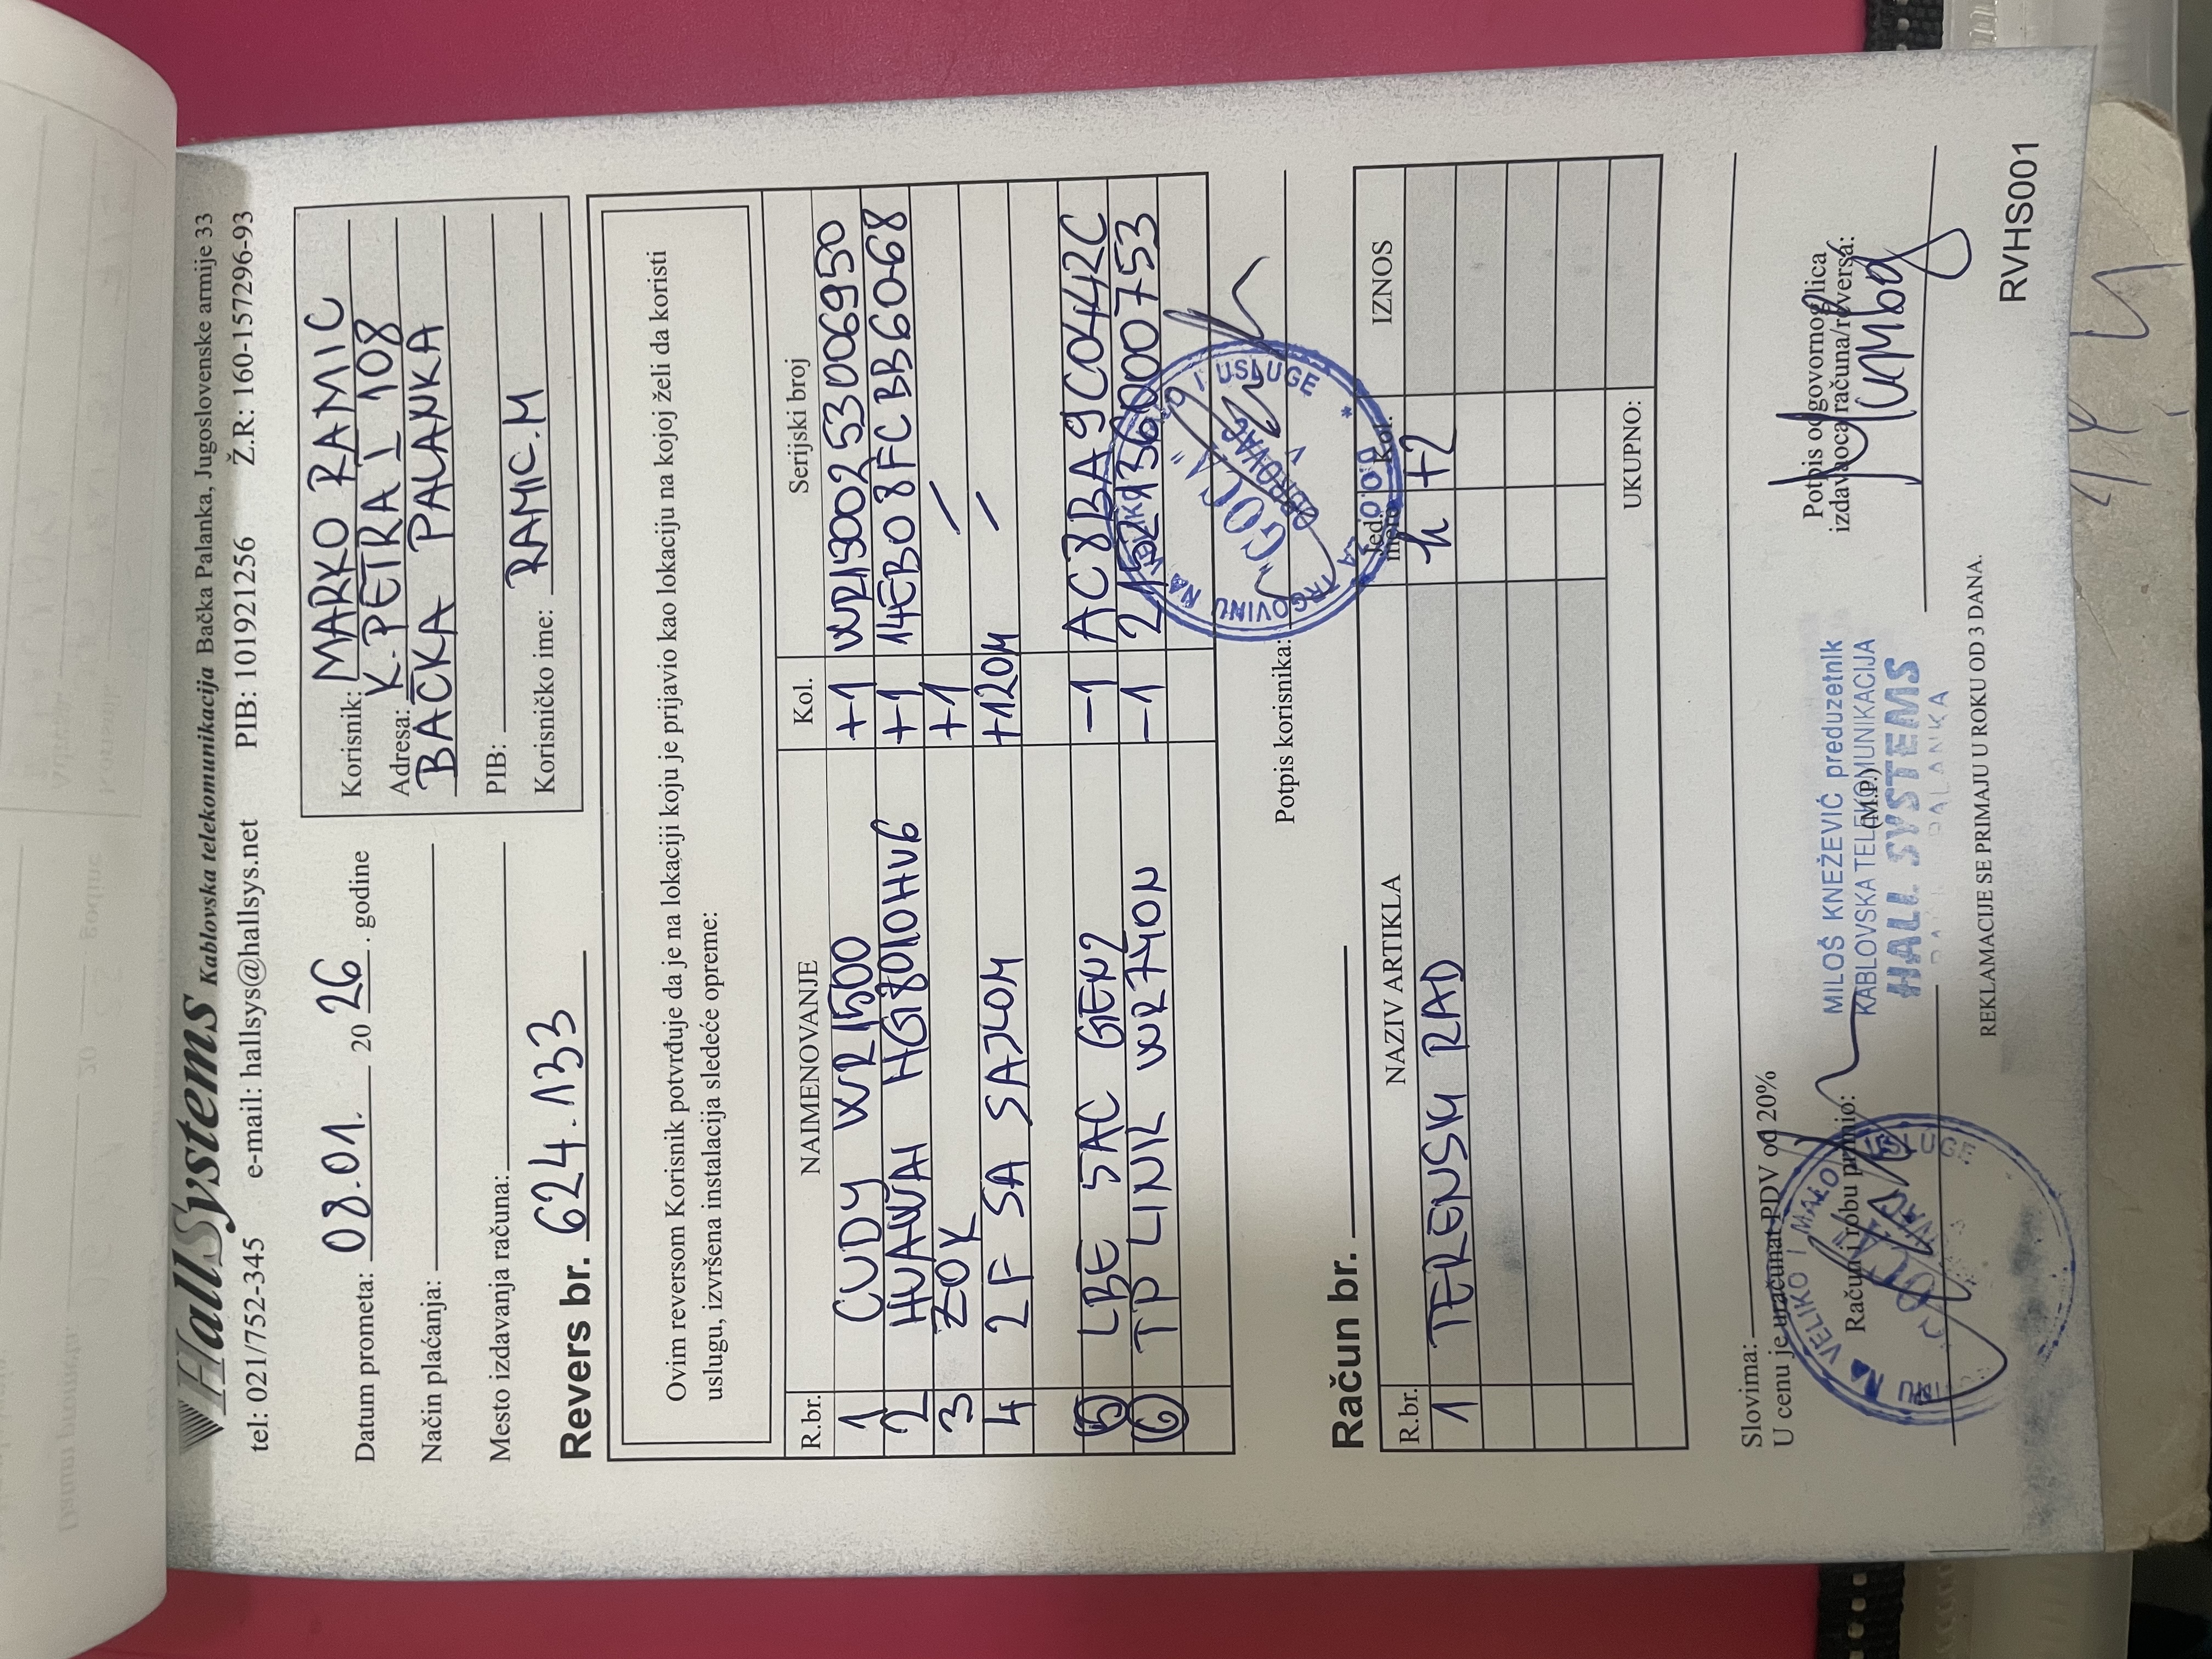 HallSystems Kablovska telekomunikacija Bačka Palanka, Jugoslovenske armije 33
tel: 021/752-345 e-mail: hallsys@hallsys.net PIB: 101921256 Ž.R: 160-157296-93
Datum prometa: 08.01. 2026. godine
Način plaćanja:
Mesto izdavanja računa:
Revers br. 624.133
Korisnik: MARKO RAMIC
Adresa: K.PETRA I 108
BAČKA PALANKA
PIB:
Korisničko ime: RAMIC.M
Ovim reversom Korisnik potvrđuje da je na lokaciji koju je prijavio kao lokaciju na kojoj želi da koristi
uslugu, izvršena instalacija sledeće opreme:
R.br. NAIMENOVANJE Kol. Serijski broj
1 CUDY WR1500 +1 WR1300253006950
2 HUAWAI HG8010HV6 +1 14EB08FCBB6068
3 ZOK +1 /
4 2F SA SAJLOM +120M /
5 LBE 5AC GEN2 -1 AC8BA9C0442C
6 TP LINK WR740N -1
Potpis korisnika:
TRGOVINU NA VELIKO I USLUGE
D.O.O.
"GOCA"
OBROVAC
Račun br.
R.br. NAZIV ARTIKLA Jed. mere Kol. IZNOS
1 TERENSKI RAD h +2
UKUPNO:
Slovima:
U cenu je uračunat PDV od 20%
Račun i robu primio:
NA VELIKO I MALO I USLUGE
MILOŠ KNEŽEVIĆ preduzetnik
KABLOVSKA TELEKOMUNIKACIJA
(M.P.)
HALL SYSTEMS
PALANKA
Potpis odgovornog lica
izdavaoca računa/reversa:
REKLAMACIJE SE PRIMAJU U ROKU OD 3 DANA.
RVHS001